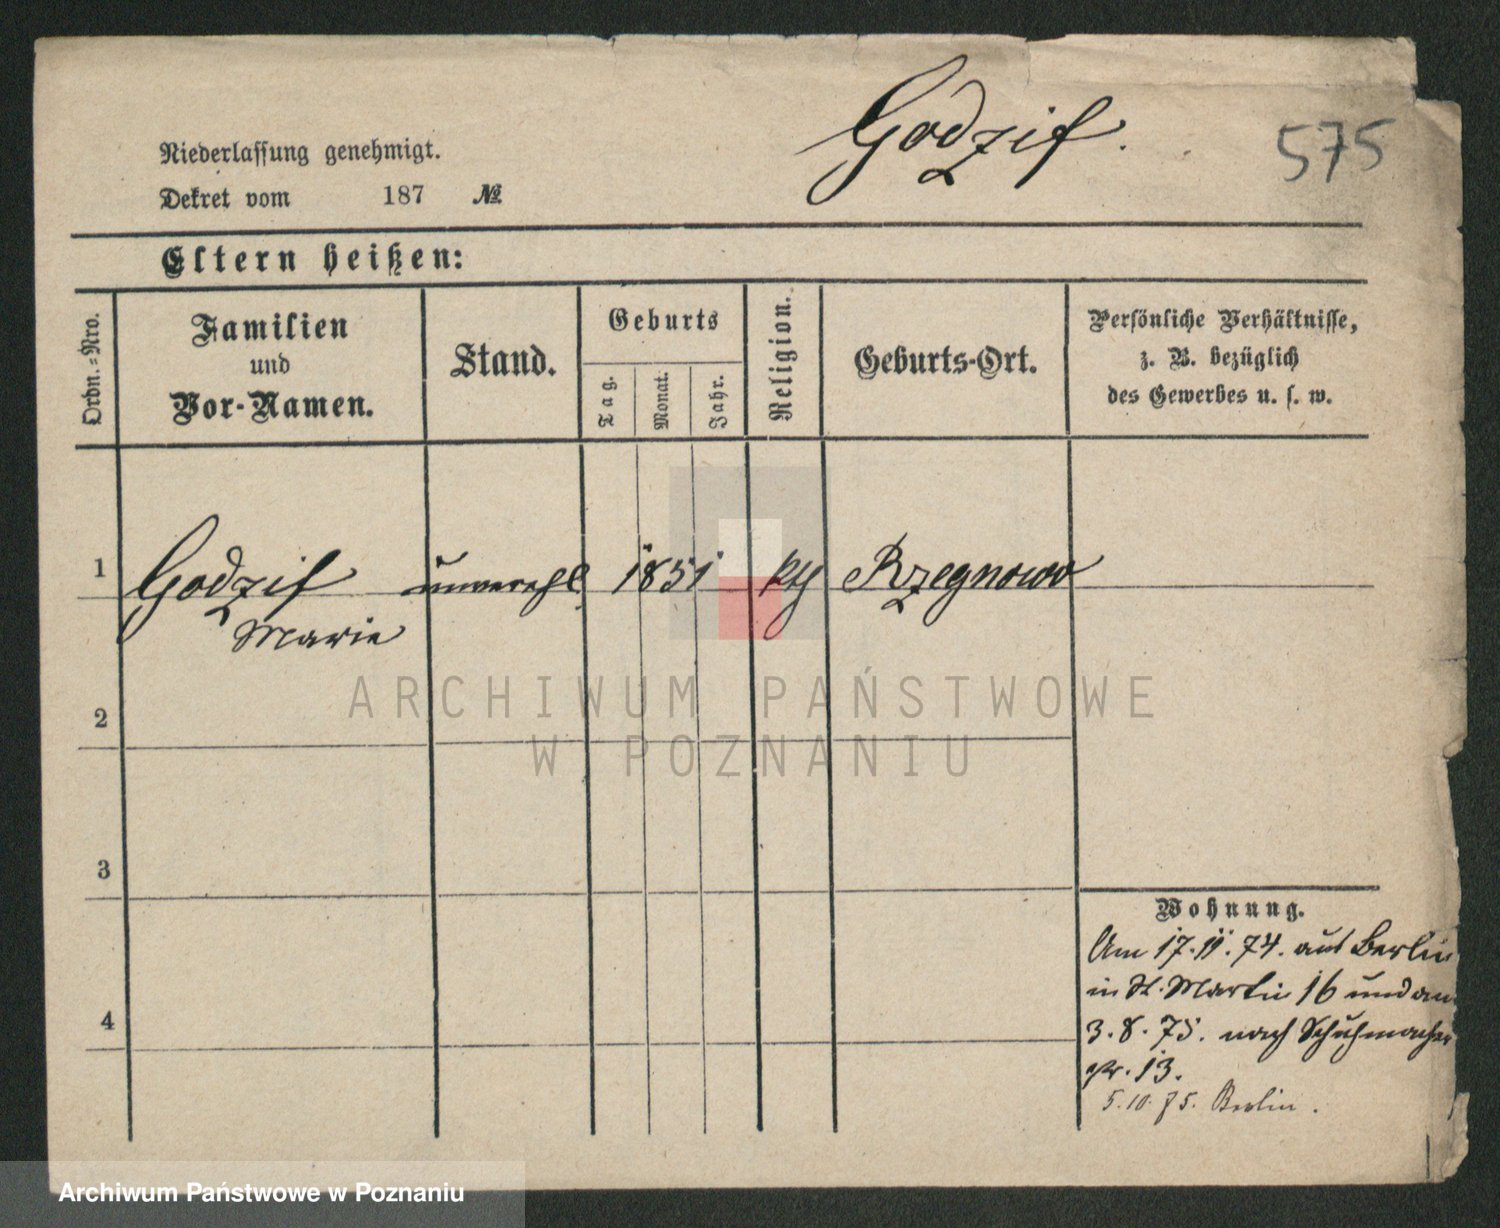 Godzif.
575
Niederlassung genehmigt.
Dekret vom 187 №
Eltern heißen:
Ordn.-Nro.
Familien
und
Vor-Namen.
Stand.
Geburts
Tag.
Monat.
Jahr.
Religion.
Geburts-Ort.
Persönliche Verhältnisse,
z. B. bezüglich
des Gewerbes u. s. w.
1 Godzif unverehl 1851 Rzegnowo
Marie
ARCHIWUM PAŃSTWOWE
W POZNANIU
2
3
4
Wohnung.
Am 17.11.74. aus Berlin
in St. Martin 16 und am
3.8.75. nach Schuhmacher
str. 13.
5.10.75. Berlin.
Archiwum Państwowe w Poznaniu